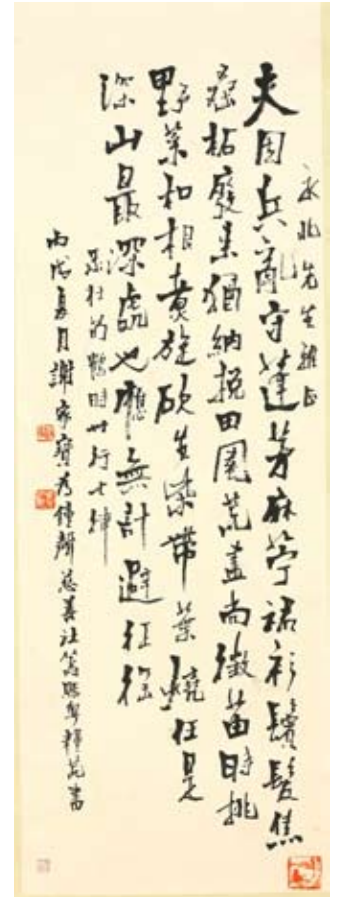 先生雅正
夫因兵亂守蓬茅麻苧裙衫鬢髮焦
桑柘廢來猶納稅田園荒盡尚徵苗時挑
野菜和根煮旋斫生柴帶葉燒任是
深山最深處也應無計避征徭
杜荀鶴時世行七律
丙戌夏月謝家寶為鐘聲慈善社籌賑粵糧荒書